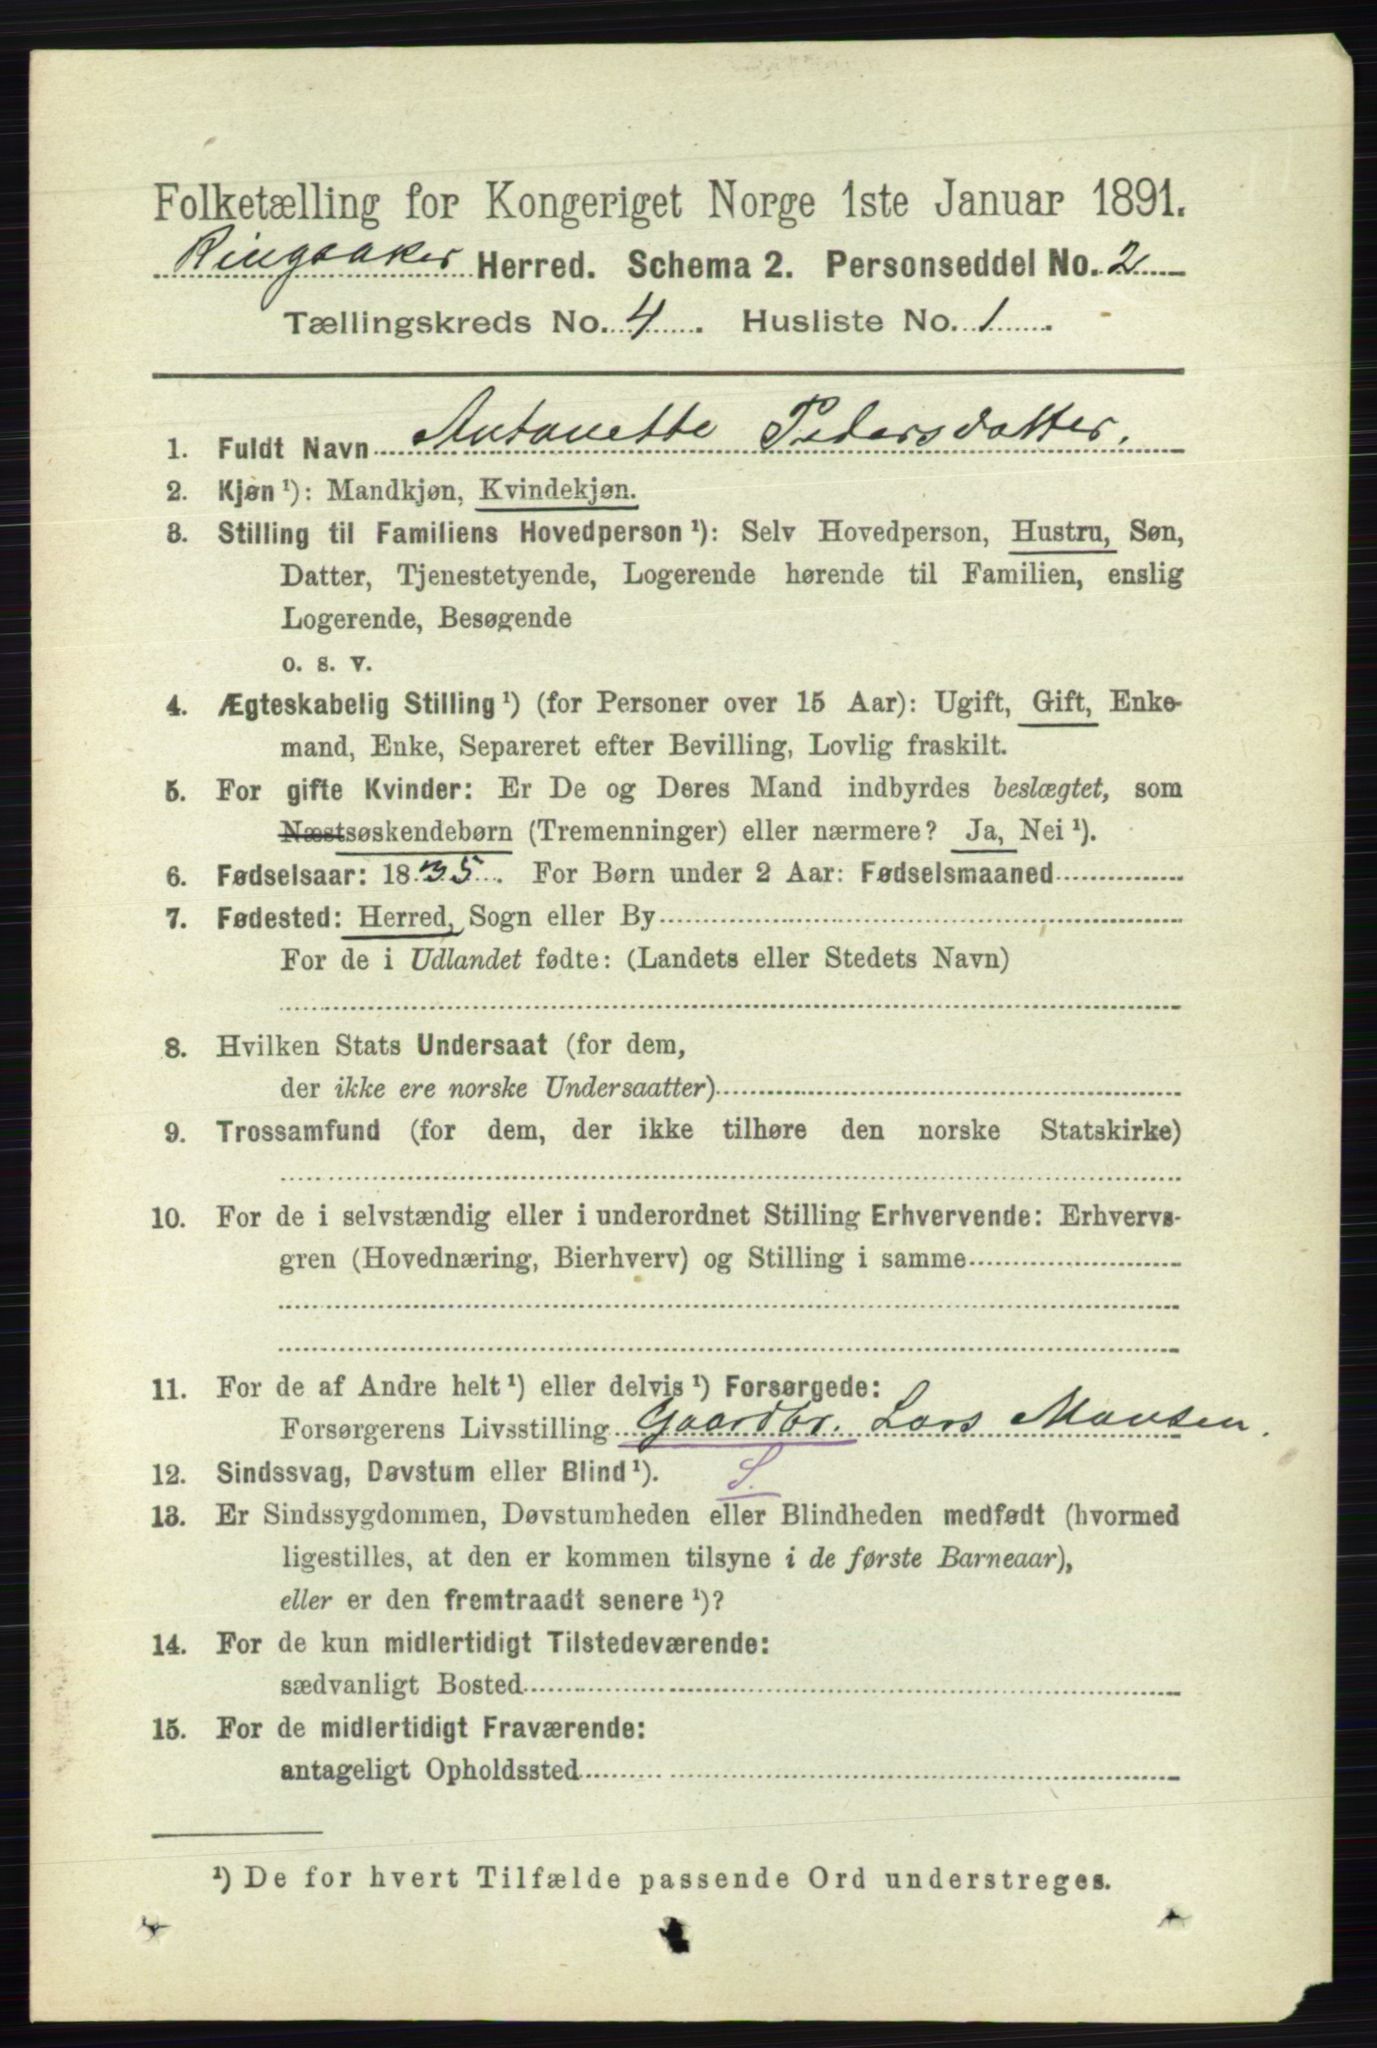 Folketælling for Kongeriget Norge 1ste Januar 1891.
Ringsaker Herred. Schema 2. Personseddel No. 2
Tællingskreds No. 4. Husliste No. 1.
1. Fuldt Navn Antonette Pedersdatter.
2. Kjøn ¹): Mandkjøn, Kvindekjøn.
3. Stilling til Familiens Hovedperson ¹): Selv Hovedperson, Hustru, Søn,
Datter, Tjenestetyende, Logerende hørende til Familien, enslig
Logerende, Besøgende
o. s. v.
4. Ægteskabelig Stilling ¹) (for Personer over 15 Aar): Ugift, Gift, Enke-
mand, Enke, Separeret efter Bevilling, Lovlig fraskilt.
5. For gifte Kvinder: Er De og Deres Mand indbyrdes beslægtet, som
Næstsøskendebørn (Tremenninger) eller nærmere? Ja, Nei ¹).
6. Fødselsaar: 1835. For Børn under 2 Aar: Fødselsmaaned
7. Fødested: Herred, Sogn eller By
For de i Udlandet fødte: (Landets eller Stedets Navn)
8. Hvilken Stats Undersaat (for dem,
der ikke ere norske Undersaatter)
9. Trossamfund (for dem, der ikke tilhøre den norske Statskirke)
10. For de i selvstændig eller i underordnet Stilling Erhvervende: Erhvervs-
gren (Hovednæring, Bierhverv) og Stilling i samme
11. For de af Andre helt ¹) eller delvis ¹) Forsørgede:
Forsørgerens Livsstilling Gaardbr. Lars Mausen.
12. Sindssvag, Døvstum eller Blind ¹). S.
13. Er Sindssygdommen, Døvstumheden eller Blindheden medfødt (hvormed
ligestilles, at den er kommen tilsyne i de første Barneaar),
eller er den fremtraadt senere ¹)?
14. For de kun midlertidigt Tilstedeværende:
sædvanligt Bosted
15. For de midlertidigt Fraværende:
antageligt Opholdssted
¹) De for hvert Tilfælde passende Ord understreges.